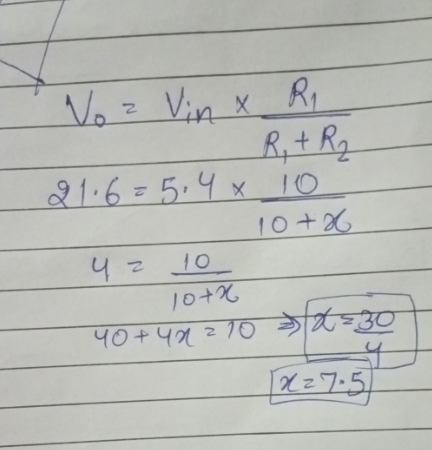 V₀ = Vin × R₁ / (R₁ + R₂)
21.6 = 5.4 × 10 / (10 + x)
4 = 10 / (10 + x)
40 + 4x = 10 ⇒ x = 30 / 4
x = 7.5